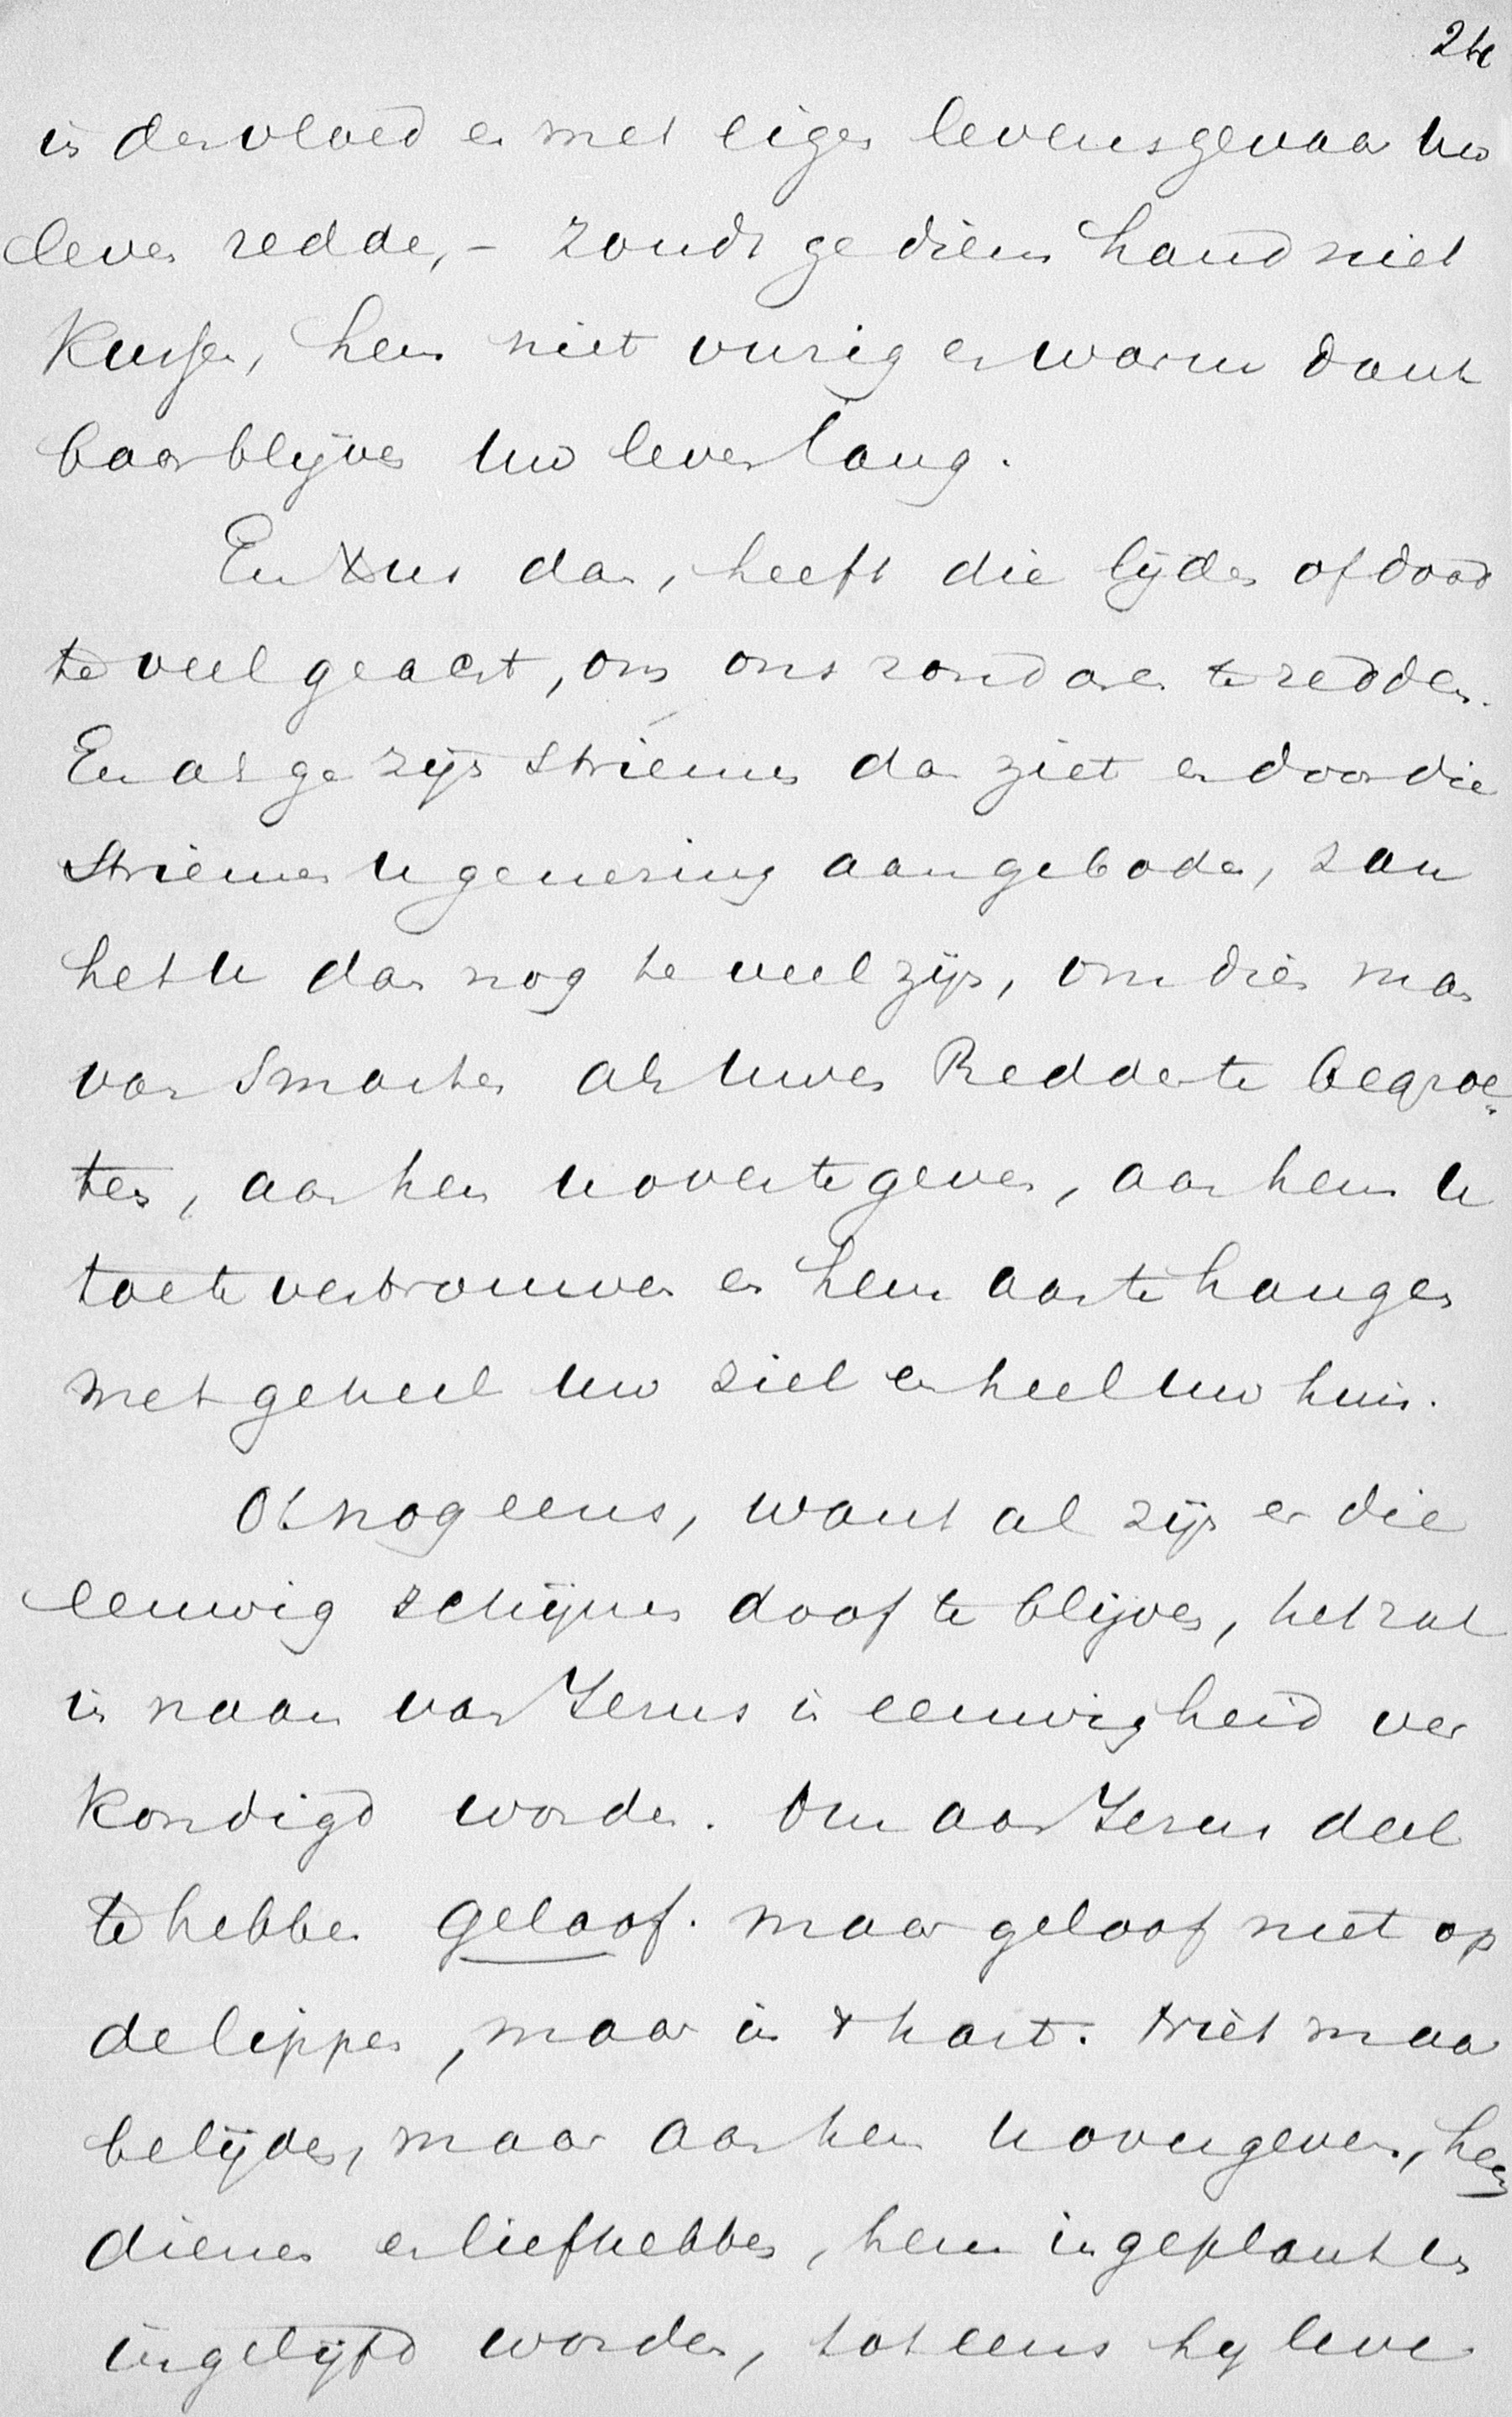 24
in den vloed en met eigen levensgevaar Uw
leven redde, – zoudt ge diens hand niet
kussen, hem niet vurig en warm dank
baar blijven Uw leven lang.
En Xus dan, heeft die lijden of dood
te veel geacht, om ons zondaren te redden.
En als ge zijn striemen dan ziet en door die
striemen U genezing aangeboden, zou
het U dan nog te veel zijn, om dien man
van Smarten als Uwen Redder te begroe„
ten, aan hem U over te geven, aan hem U
toe te vertrouwen en hem aan te hangen
met geheel Uw ziel en heel Uw huis.
O nog eens, want al zijn er die
eeuwig schijnen doof te blijven, het zal
in naam van Jezus in eeuwigheid ver
kondigd worden. Om aan Jezus deel
te hebben geloof. Maar geloof niet op
de lippen, maar in 't hart. Niet maar
belijden, maar aan hem U overgeven, hem
dienen en liefhebben, hem ingeplant en
ingelijfd worden, tot eens hij leve